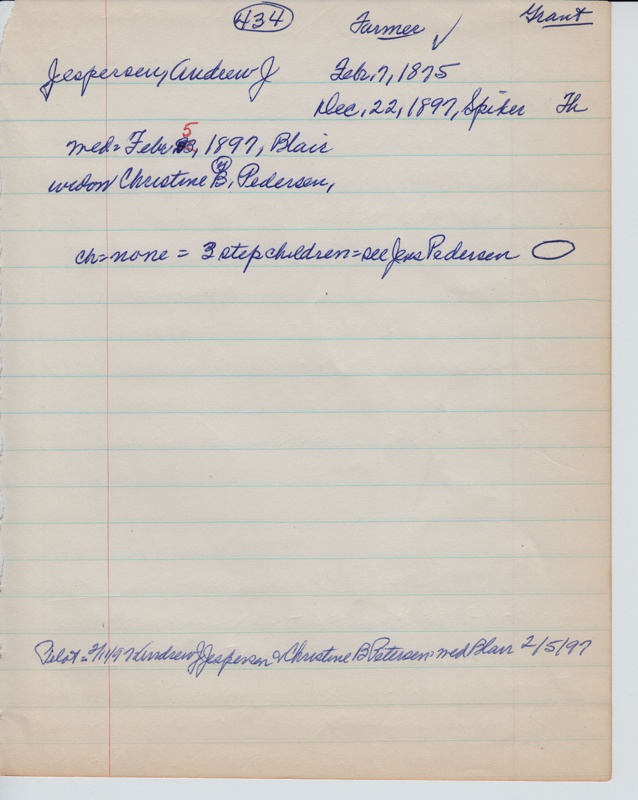 434 Farmer ✓ Grant
Jespersen, Andrew J Feb. 7, 1875
Dec. 22, 1897, Spiker Th
med = Feb. 5, 1897, Blair
widow Christine B. Pedersen,
ch = none = 3 stepchildren = see Jens Pedersen
Pilot = Andrew J Jespersen & Christine B Petersen = med Blair 2/5/97